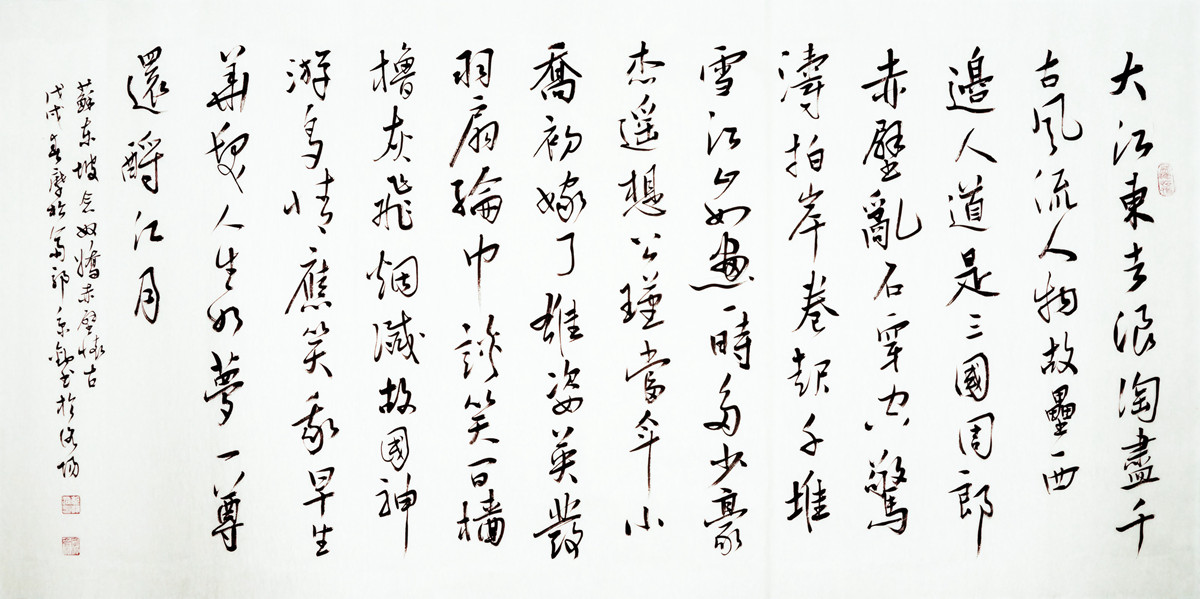 大江東去浪淘盡千
古風流人物故壘西
邊人道是三國周郎
赤壁亂石穿空驚
濤拍岸卷起千堆
雪江山如畫一時多少豪
杰遥想公瑾當年小
喬初嫁了雄姿英發
羽扇綸巾談笑间檣
櫓灰飛烟滅故國神
游多情應笑我早生
華髮人生如夢一尊
還酹江月
蘇东坡念奴嬌赤壁懷古
戊戌春书於洛陽